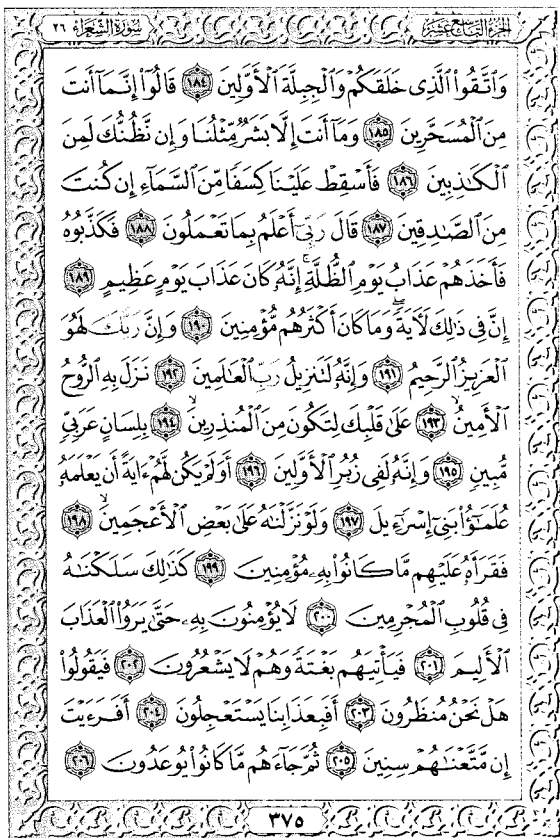 الجزء التاسع عشر
سورة الشعراء ٢٦
وَٱتَّقُوا۟ ٱلَّذِى خَلَقَكُمْ وَٱلْجِبِلَّةَ ٱلْأَوَّلِينَ ١٨٤ قَالُوٓا۟ إِنَّمَآ أَنتَ
مِنَ ٱلْمُسَحَّرِينَ ١٨٥ وَمَآ أَنتَ إِلَّا بَشَرٌ مِّثْلُنَا وَإِن نَّظُنُّكَ لَمِنَ
ٱلْكَـٰذِبِينَ ١٨٦ فَأَسْقِطْ عَلَيْنَا كِسَفًا مِّنَ ٱلسَّمَآءِ إِن كُنتَ
مِنَ ٱلصَّـٰدِقِينَ ١٨٧ قَالَ رَبِّىٓ أَعْلَمُ بِمَا تَعْمَلُونَ ١٨٨ فَكَذَّبُوهُ
فَأَخَذَهُمْ عَذَابُ يَوْمِ ٱلظُّلَّةِ ۚ إِنَّهُۥ كَانَ عَذَابَ يَوْمٍ عَظِيمٍ ١٨٩
إِنَّ فِى ذَٰلِكَ لَـَٔايَةً ۖ وَمَا كَانَ أَكْثَرُهُم مُّؤْمِنِينَ ١٩٠ وَإِنَّ رَبَّكَ لَهُوَ
ٱلْعَزِيزُ ٱلرَّحِيمُ ١٩١ وَإِنَّهُۥ لَتَنزِيلُ رَبِّ ٱلْعَـٰلَمِينَ ١٩٢ نَزَلَ بِهِ ٱلرُّوحُ
ٱلْأَمِينُ ١٩٣ عَلَىٰ قَلْبِكَ لِتَكُونَ مِنَ ٱلْمُنذِرِينَ ١٩٤ بِلِسَانٍ عَرَبِىٍّ
مُّبِينٍ ١٩٥ وَإِنَّهُۥ لَفِى زُبُرِ ٱلْأَوَّلِينَ ١٩٦ أَوَلَمْ يَكُن لَّهُمْ ءَايَةً أَن يَعْلَمَهُۥ
عُلَمَـٰٓؤُا۟ بَنِىٓ إِسْرَٰٓءِيلَ ١٩٧ وَلَوْ نَزَّلْنَـٰهُ عَلَىٰ بَعْضِ ٱلْأَعْجَمِينَ ١٩٨
فَقَرَأَهُۥ عَلَيْهِم مَّا كَانُوا۟ بِهِۦ مُؤْمِنِينَ ١٩٩ كَذَٰلِكَ سَلَكْنَـٰهُ
فِى قُلُوبِ ٱلْمُجْرِمِينَ ٢٠٠ لَا يُؤْمِنُونَ بِهِۦ حَتَّىٰ يَرَوُا۟ ٱلْعَذَابَ
ٱلْأَلِيمَ ٢٠١ فَيَأْتِيَهُم بَغْتَةً وَهُمْ لَا يَشْعُرُونَ ٢٠٢ فَيَقُولُوا۟
هَلْ نَحْنُ مُنظَرُونَ ٢٠٣ أَفَبِعَذَابِنَا يَسْتَعْجِلُونَ ٢٠٤ أَفَرَءَيْتَ
إِن مَّتَّعْنَـٰهُمْ سِنِينَ ٢٠٥ ثُمَّ جَآءَهُم مَّا كَانُوا۟ يُوعَدُونَ ٢٠٦
٣٧٥